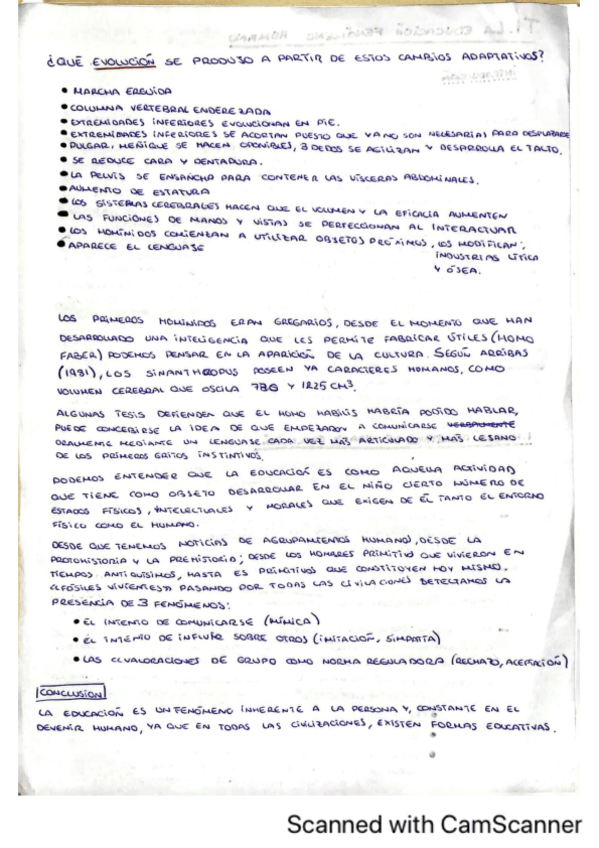 ¿QUÉ EVOLUCIÓN SE PRODUJO A PARTIR DE ESTOS CAMBIOS ADAPTATIVOS?
• MARCHA ERGUIDA
• COLUMNA VERTEBRAL ENDEREZADA
• EXTREMIDADES INFERIORES EVOLUCIONAN EN PIE.
• EXTREMIDADES INFERIORES SE ACORTAN PUESTO QUE YA NO SON NECESARIAS PARA DESPLAZARSE
• PULGAR, MEÑIQUE SE HACEN OPONIBLES, 3 DEDOS SE AGILIZAN Y DESARROLLA EL TACTO.
• SE REDUCE CARA Y DENTADURA.
• LA PELVIS SE ENSANCHA PARA CONTENER LAS VÍSCERAS ABDOMINALES.
• AUMENTO DE ESTATURA
• LOS SISTEMAS CEREBRALES HACEN QUE EL VOLUMEN Y LA EFICACIA AUMENTEN
• LAS FUNCIONES DE MANOS Y VISTAS SE PERFECCIONAN AL INTERACTUAR
• LOS HOMÍNIDOS COMIENZAN A UTILIZAR OBJETOS PRÓXIMOS, LOS MODIFICAN;
• APARECE EL LENGUAJE
INDUSTRIAS LÍTICA
Y ÓSEA.
LOS PRIMEROS HOMINIDOS ERAN GREGARIOS, DESDE EL MOMENTO QUE HAN
DESARROLLADO UNA INTELIGENCIA QUE LES PERMITE FABRICAR ÚTILES (HOMO
FABER) PODEMOS PENSAR EN LA APARICIÓN DE LA CULTURA. SEGÚN ARRIBAS
(1981), LOS SINANTHROPUS POSEEN YA CARACTERES HUMANOS, COMO
VOLUMEN CEREBRAL QUE OSCILA 786 Y 1225 CM³.
ALGUNAS TESIS DEFIENDEN QUE EL HOMO HABILIS HABRÍA PODIDO HABLAR,
PUEDE CONCEBIRSE LA IDEA DE QUE EMPEZARON A COMUNICARSE VERBALMENTE
ORALMENTE MEDIANTE UN LENGUAJE CADA VEZ MÁS ARTICULADO Y MÁS LEJANO
DE LOS PRIMEROS GRITOS INSTINTIVOS.
PODEMOS ENTENDER QUE LA EDUCACIÓN ES COMO AQUELLA ACTIVIDAD
QUE TIENE COMO OBJETO DESARROLLAR EN EL NIÑO CIERTO NÚMERO DE
ESTADOS FÍSICOS, INTELECTUALES Y MORALES QUE EXIGEN DE ÉL TANTO EL ENTORNO
FÍSICO COMO EL HUMANO.
DESDE QUE TENEMOS NOTICIAS DE AGRUPAMIENTOS HUMANOS, DESDE LA
PROTOHISTORIA Y LA PREHISTORIA; DESDE LOS HOMBRES PRIMITIVO QUE VIVIERON EN
TIEMPOS ANTIQUÍSIMOS, HASTA ES PRIMITIVOS QUE CONSTITUYEN HOY MISMO.
«FÓSILES VIVIENTES» PASANDO POR TODAS LAS CIVILACIONES DETECTAMOS LA
PRESENCIA DE 3 FENÓMENOS:
• EL INTENTO DE COMUNICARSE (MÍMICA)
• EL INTENTO DE INFLUIR SOBRE OTROS (IMITACIÓN, SIMPATÍA)
• LAS VALORACIONES DE GRUPO COMO NORMA REGULADORA (RECHAZO, ACEPTACIÓN)
CONCLUSIÓN
LA EDUCACIÓN ES UN FENÓMENO INHERENTE A LA PERSONA Y, CONSTANTE EN EL
DEVENIR HUMANO, YA QUE EN TODAS LAS CIVILIZACIONES, EXISTEN FORMAS EDUCATIVAS.
Scanned with CamScanner